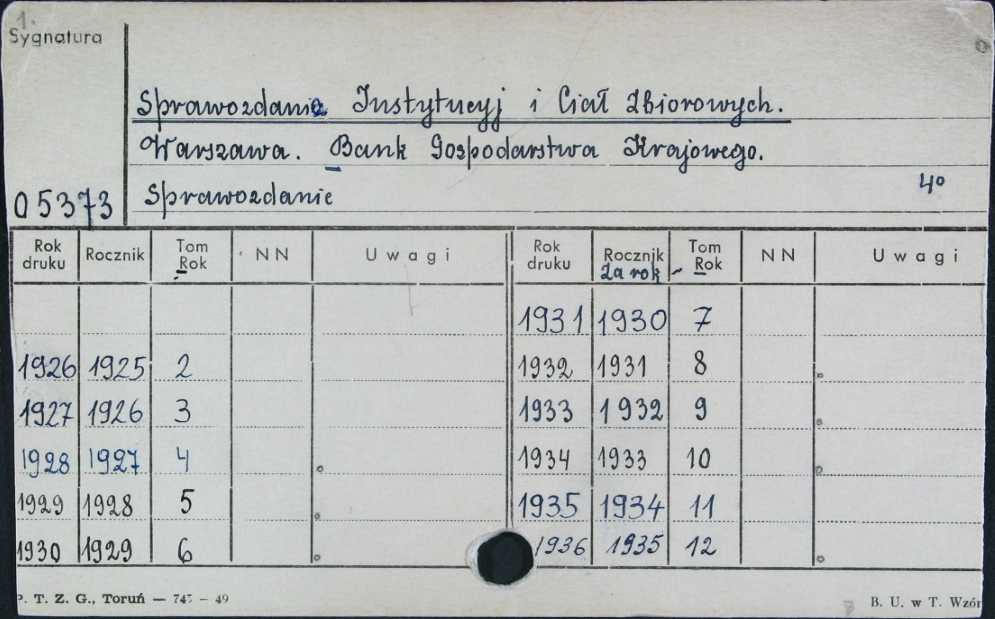 1.
Sygnatura
Sprawozdanie Instytucyj i Ciał Zbiorowych.
Warszawa. Bank Gospodarstwa Krajowego.
05373 Sprawozdanie 4o
Rok druku Rocznik Tom Rok NN Uwagi Rok druku Rocznik za rok Tom Rok NN Uwagi
1931 1930 7
1926 1925 2 1932 1931 8
1927 1926 3 1933 1932 9
1928 1927 4 1934 1933 10
1929 1928 5 1935 1934 11
1930 1929 6 1936 1935 12
P. T. Z. G., Toruń — 747 — 49 B. U. w T. Wzór